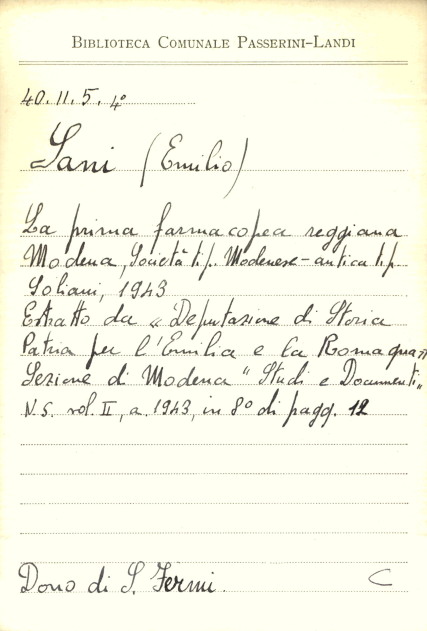 BIBLIOTECA COMUNALE PASSERINI-LANDI
40.II.5.4°
Sani (Emilio)
La prima farmacopea reggiana
Modena, Società tip. Modenese - antica tip.
Soliani, 1943
Estratto da « Deputazione di Storia
Patria per l'Emilia e la Romagna »
Sezione di Modena "Studi e Documenti"
N.S. vol. II, a. 1943, in 8° di pagg. 12
Dono di S. Fermi.
C